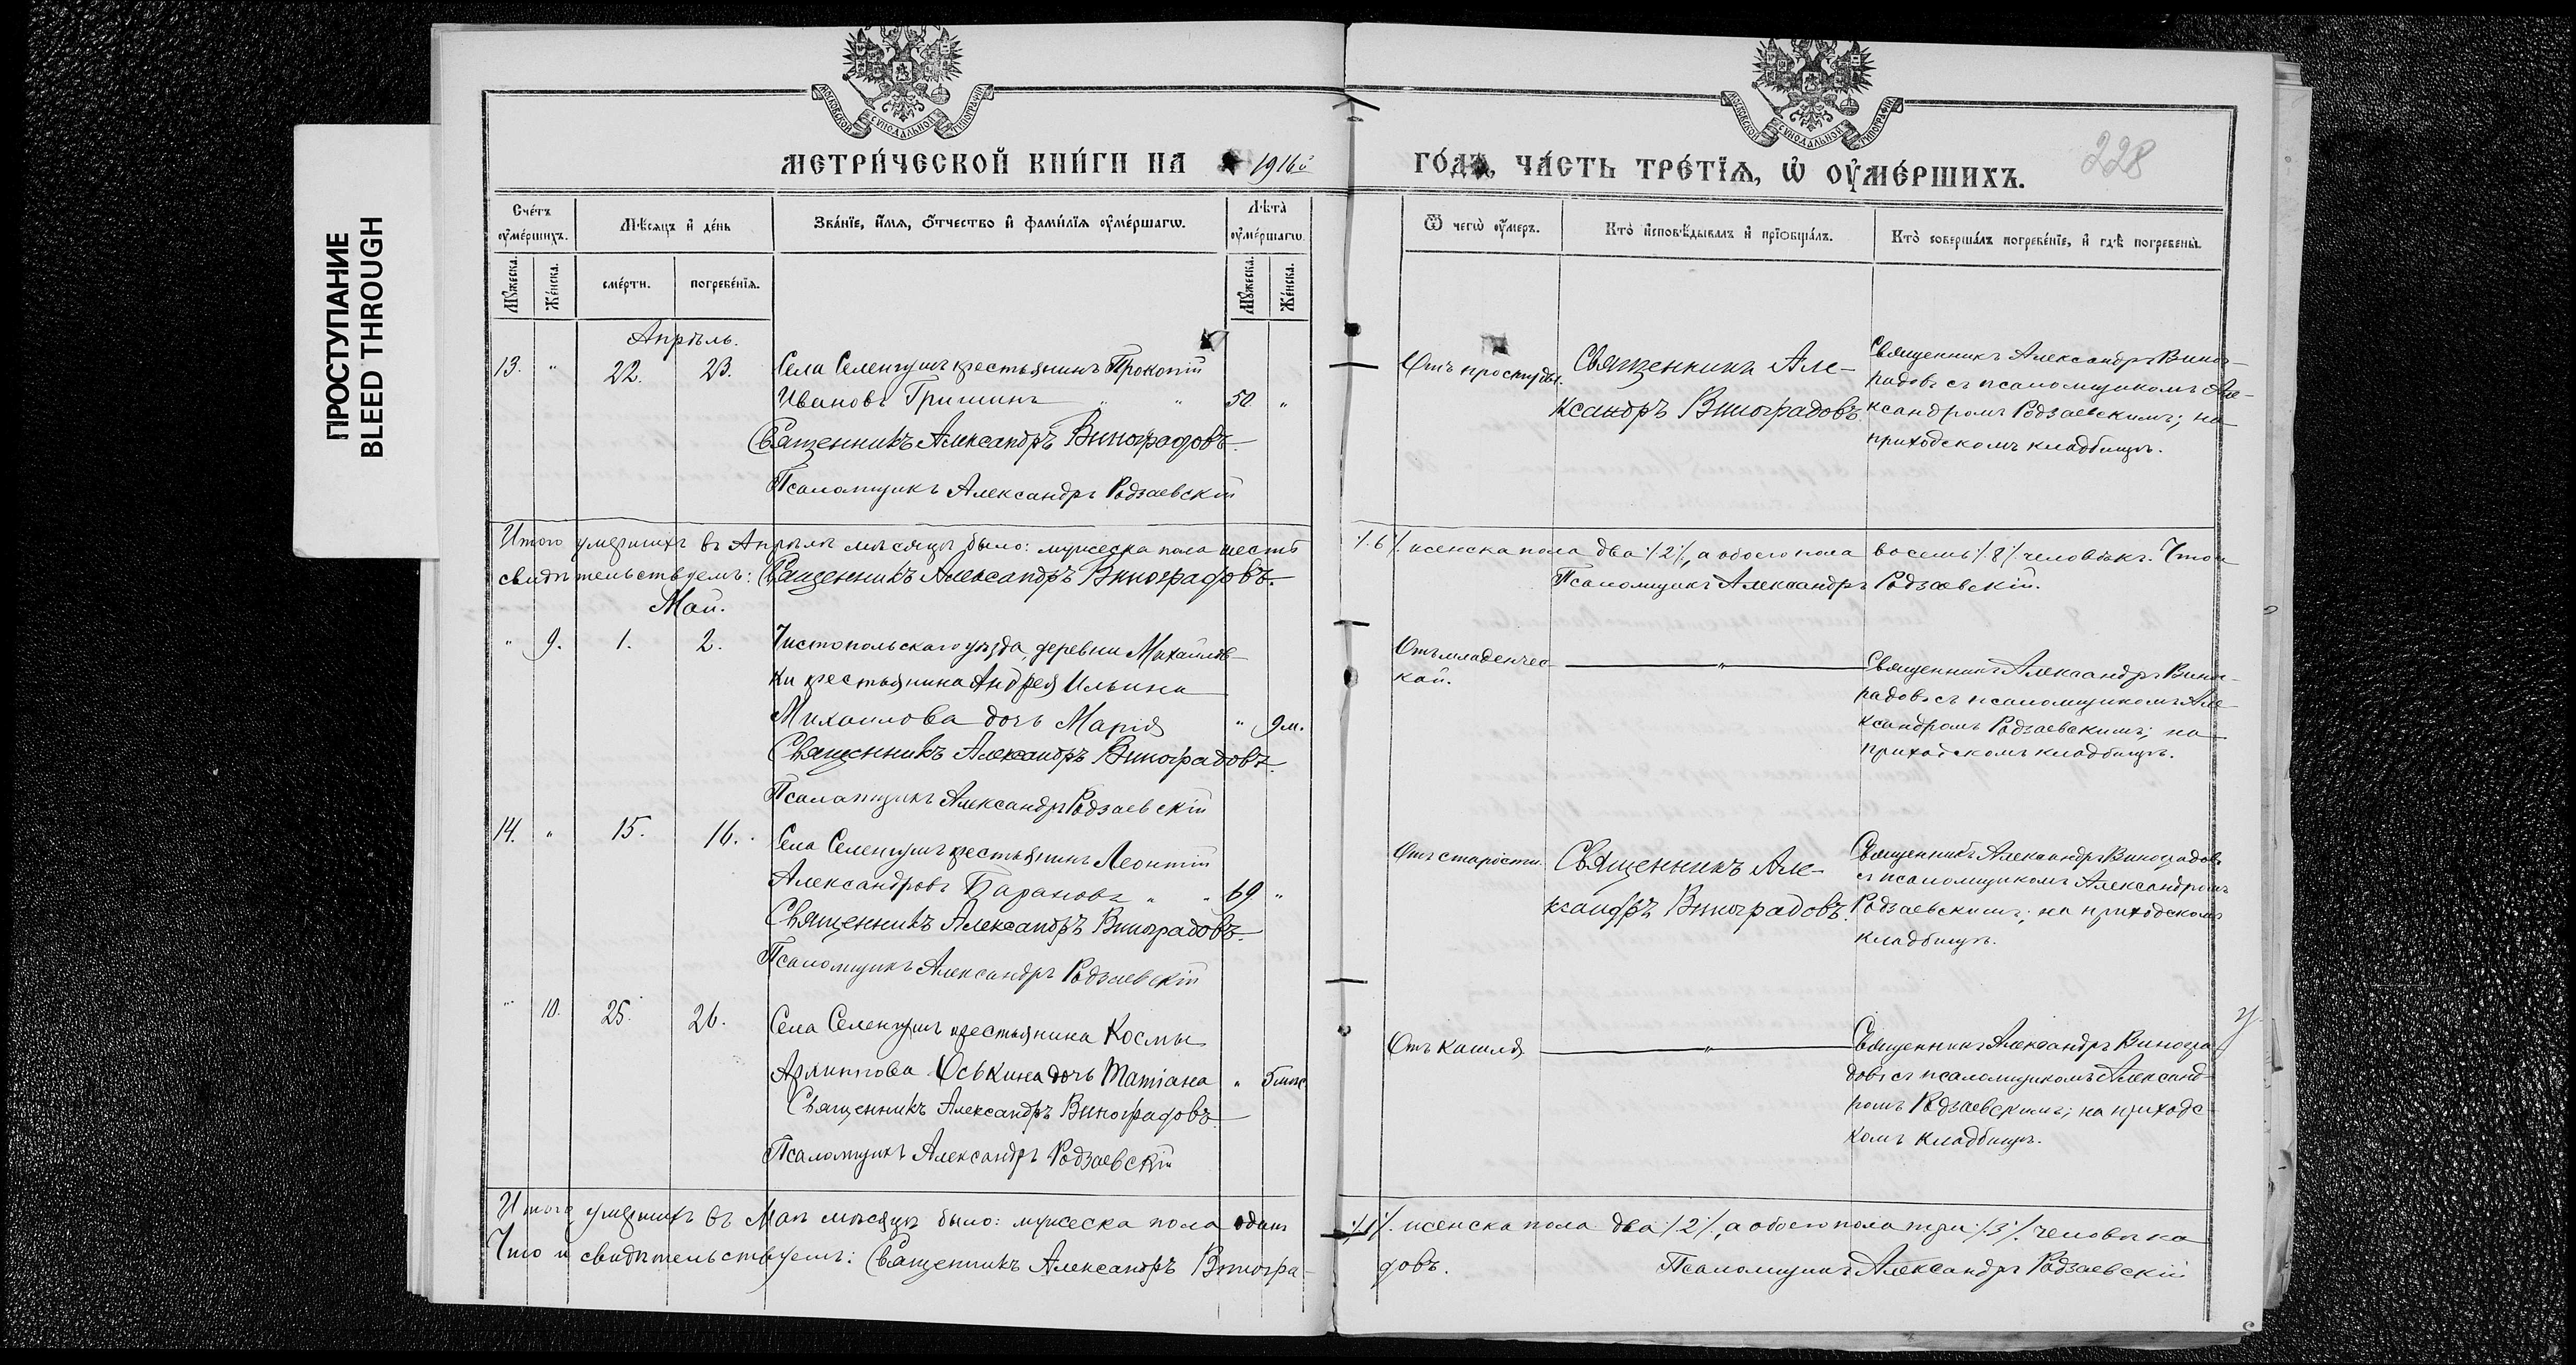 ПРОСТУПАНИЕ
BLEED THROUGH
МОСКОВСКОЙ СѴНОДАЛЬНОЙ ТИПОГРАФІИ
МОСКОВСКОЙ СѴНОДАЛЬНОЙ ТИПОГРАФІИ
МЕТРИ́ЧЕСКОЙ КНИ́ГИ НА 1916й
ГО́ДЪ, ЧА́СТЬ ТРЕ́ТІѦ, Ѡ҆ ОУ҆МЕ́РШИХЪ.
228
Сче́тъ оу҆ме́ршихъ.
Мѣ́сяцъ и҆ де́нь
Зва́нїе, и҆́мѧ, ѻ҆́тчество и҆ фами́лїѧ оу҆ме́ршагѡ.
Лѣта̀ оу҆ме́ршагѡ.
Ѿ чегѡ̀ оу҆́меръ.
Кто̀ и҆сповѣ́дывалъ и҆ прїѡбща́лъ.
Кто̀ соверша́лъ погребе́нїе, и҆ гдѣ̀ погребены̀.
Мꙋ́жеска.
Же́нска.
сме́рти.
погребе́нїѧ.
Мꙋ́жеска.
Же́нска.
Апрѣль.
13. " 22. 23. Села Селенгушъ крестьянинъ Прокопій
Ивановъ Гришинъ " " 50 "
Священникъ Александръ Виноградовъ.
Псаломщикъ Александръ Родзаевскій
Отъ простуды.
Священникъ Але-
ксандръ Виноградовъ.
Священникъ Александръ Виног-
радовъ съ псаломщикомъ Але-
ксандромъ Родзаевскимъ; на
приходскомъ кладбищѣ.
Итого умершихъ въ Апрѣлѣ мѣсяцѣ было: мужеска пола шесть ./.6./. женска пола два ./.2./., а обоего пола восемь ./.8./. человѣкъ. Что и
свидѣтельствуемъ: Священникъ Александръ Виноградовъ. Псаломщикъ Александръ Родзаевскій.
Май.
" 9. 1. 2. Чистопольскаго уѣзда, деревни Михайлов-
ки крестьянина Андрея Ильина
Михайлова дочь Марія " 9 м.
Священникъ Александръ Виноградовъ.
Псаломщикъ Александръ Родзаевскій
Отъ младенчес-
кой.
"
Священникъ Александръ Виног-
радовъ съ псаломщикомъ Але-
ксандромъ Родзаевскимъ; на
приходскомъ кладбищѣ.
14. " 15. 16. Села Селенгушъ крестьянинъ Леонтій
Александровъ Барановъ " " 69 "
Священникъ Александръ Виноградовъ.
Псаломщикъ Александръ Родзаевскій
Отъ старости.
Священникъ Але-
ксандръ Виноградовъ.
Священникъ Александръ Виноградовъ
съ псаломщикомъ Александромъ
Родзаевскимъ; на приходскомъ
кладбищѣ.
" 10. 25. 26. Села Селенгушъ крестьянина Космы
Оськина дочь Татіана "
Священникъ Александръ Виноградовъ
Псаломщикъ Александръ Родзаевскій
Отъ кашля
"
Священникъ Александръ Виногра-
довъ съ псаломщикомъ Александ-
ромъ Родзаевскимъ; на приходс-
комъ кладбищѣ.
Итого умершихъ въ Маѣ мѣсяцѣ было: мужеска пола одинъ ./.1./. женска пола два ./.2./., а обоего пола три ./.3./. человѣка
Что и свидѣтельствуемъ: Священникъ Александръ Виногра-
довъ. Псаломщикъ Александръ Родзаевскій